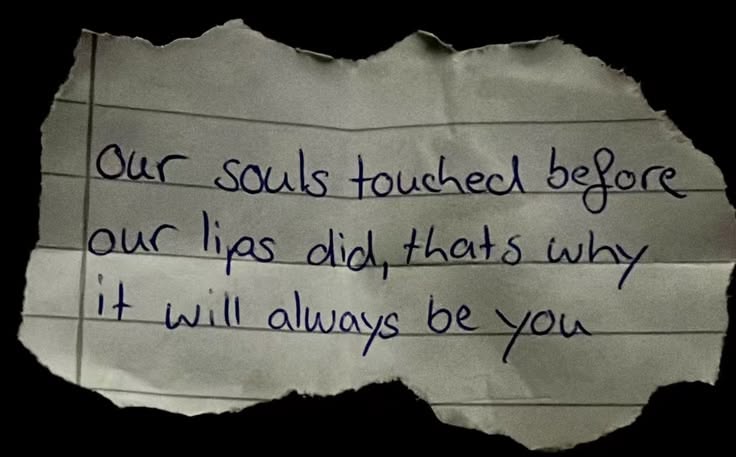 our souls touched before
our lips did, thats why
it will always be you